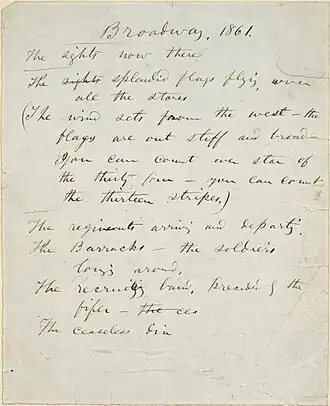 Broadway, 1861.
The sights now there
The sights splendid flags flying over
all the stores
(The wind sets from the west – the
flags are out stiff and broad –
you can count every star of
the thirty four – you can count
the thirteen stripes.)
The regiments arriving and departing,
The Barracks – the soldiers
lounging around,
The recruiting band, preceded by the
fifer – the ces
The ceaseless din